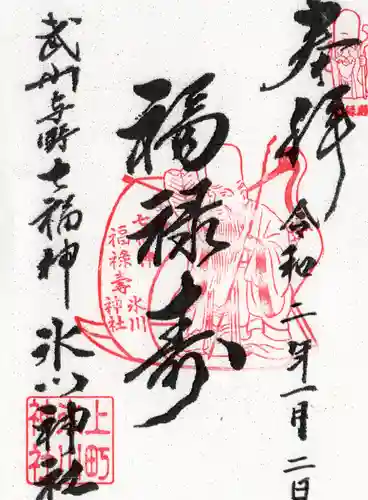 奉拝
令和二年一月二日
福禄寿
武州与野七福神 氷川神社
七福神
福禄寿
氷川
神社
上町
氷川
神社